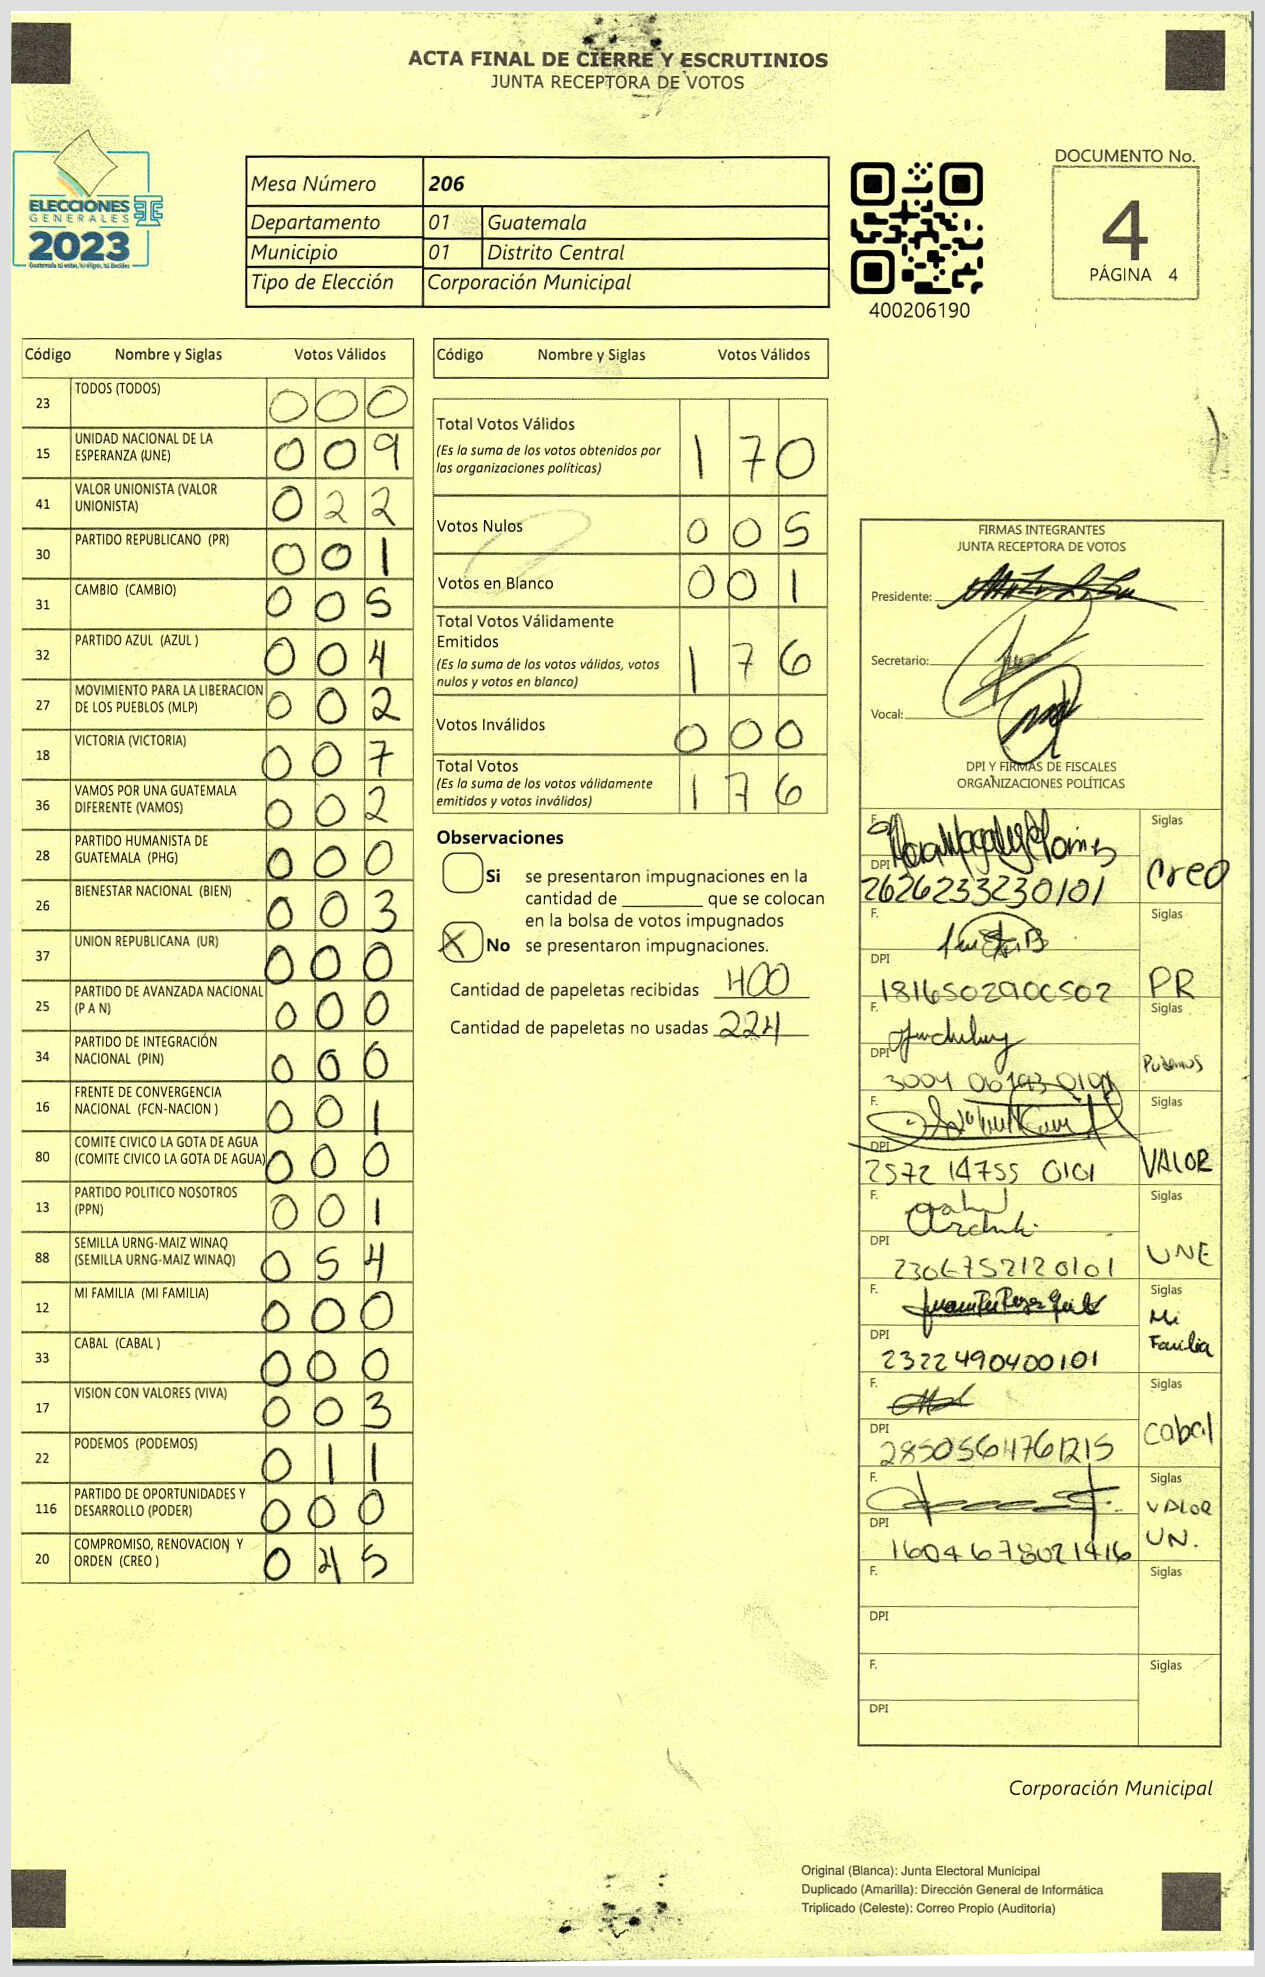 ACTA FINAL DE CIERRE Y ESCRUTINIOS
JUNTA RECEPTORA DE VOTOS
ELECCIONES
GENERALES
2023
Guatemala tú votas, tú eliges, tú decides
Mesa Número 206
Departamento 01 Guatemala
Municipio 01 Distrito Central
Tipo de Elección Corporación Municipal
400206190
DOCUMENTO No.
4
PÁGINA 4
Código Nombre y Siglas Votos Válidos
23 TODOS (TODOS) 0 0 0
15 UNIDAD NACIONAL DE LA
ESPERANZA (UNE) 0 0 9
41 VALOR UNIONISTA (VALOR
UNIONISTA) 0 2 2
30 PARTIDO REPUBLICANO (PR) 0 0 1
31 CAMBIO (CAMBIO) 0 0 5
32 PARTIDO AZUL (AZUL ) 0 0 4
27 MOVIMIENTO PARA LA LIBERACION
DE LOS PUEBLOS (MLP) 0 0 2
18 VICTORIA (VICTORIA) 0 0 7
36 VAMOS POR UNA GUATEMALA
DIFERENTE (VAMOS) 0 0 2
28 PARTIDO HUMANISTA DE
GUATEMALA (PHG) 0 0 0
26 BIENESTAR NACIONAL (BIEN) 0 0 3
37 UNION REPUBLICANA (UR) 0 0 0
25 PARTIDO DE AVANZADA NACIONAL
(P A N) 0 0 0
34 PARTIDO DE INTEGRACIÓN
NACIONAL (PIN) 0 0 0
16 FRENTE DE CONVERGENCIA
NACIONAL (FCN-NACION ) 0 0 1
80 COMITE CIVICO LA GOTA DE AGUA
(COMITE CIVICO LA GOTA DE AGUA) 0 0 0
13 PARTIDO POLITICO NOSOTROS
(PPN) 0 0 1
88 SEMILLA URNG-MAIZ WINAQ
(SEMILLA URNG-MAIZ WINAQ) 0 5 4
12 MI FAMILIA (MI FAMILIA) 0 0 0
33 CABAL (CABAL ) 0 0 0
17 VISION CON VALORES (VIVA) 0 0 3
22 PODEMOS (PODEMOS) 0 1 1
116 PARTIDO DE OPORTUNIDADES Y
DESARROLLO (PODER) 0 0 0
20 COMPROMISO, RENOVACION Y
ORDEN (CREO ) 0 4 5
Código Nombre y Siglas Votos Válidos
Total Votos Válidos 1 7 0
(Es la suma de los votos obtenidos por
las organizaciones políticas)
Votos Nulos 0 0 5
Votos en Blanco 0 0 1
Total Votos Válidamente
Emitidos 1 7 6
(Es la suma de los votos válidos, votos
nulos y votos en blanco)
Votos Inválidos 0 0 0
Total Votos 1 7 6
(Es la suma de los votos válidamente
emitidos y votos inválidos)
Observaciones
Si se presentaron impugnaciones en la
cantidad de ________ que se colocan
en la bolsa de votos impugnados
X No se presentaron impugnaciones.
Cantidad de papeletas recibidas 400
Cantidad de papeletas no usadas 224
FIRMAS INTEGRANTES
JUNTA RECEPTORA DE VOTOS
Presidente:
Secretario:
Vocal:
DPI Y FIRMAS DE FISCALES
ORGANIZACIONES POLÍTICAS
F. Siglas
DPI Creo
2626233230101
F. Siglas
DPI PR
1816502900502
F. Siglas
DPI Podemos
F. Siglas
DPI VALOR
2572 14755 0101
F. Siglas
DPI UNE
2306752120101
F. Siglas
DPI Mi
Familia
2322490400101
F. Siglas
DPI Cabal
2850564761215
F. Siglas
DPI VALOR
UN.
1604678021416
F. Siglas
DPI
F. Siglas
DPI
Corporación Municipal
Original (Blanca): Junta Electoral Municipal
Duplicado (Amarilla): Dirección General de Informática
Triplicado (Celeste): Correo Propio (Auditoría)